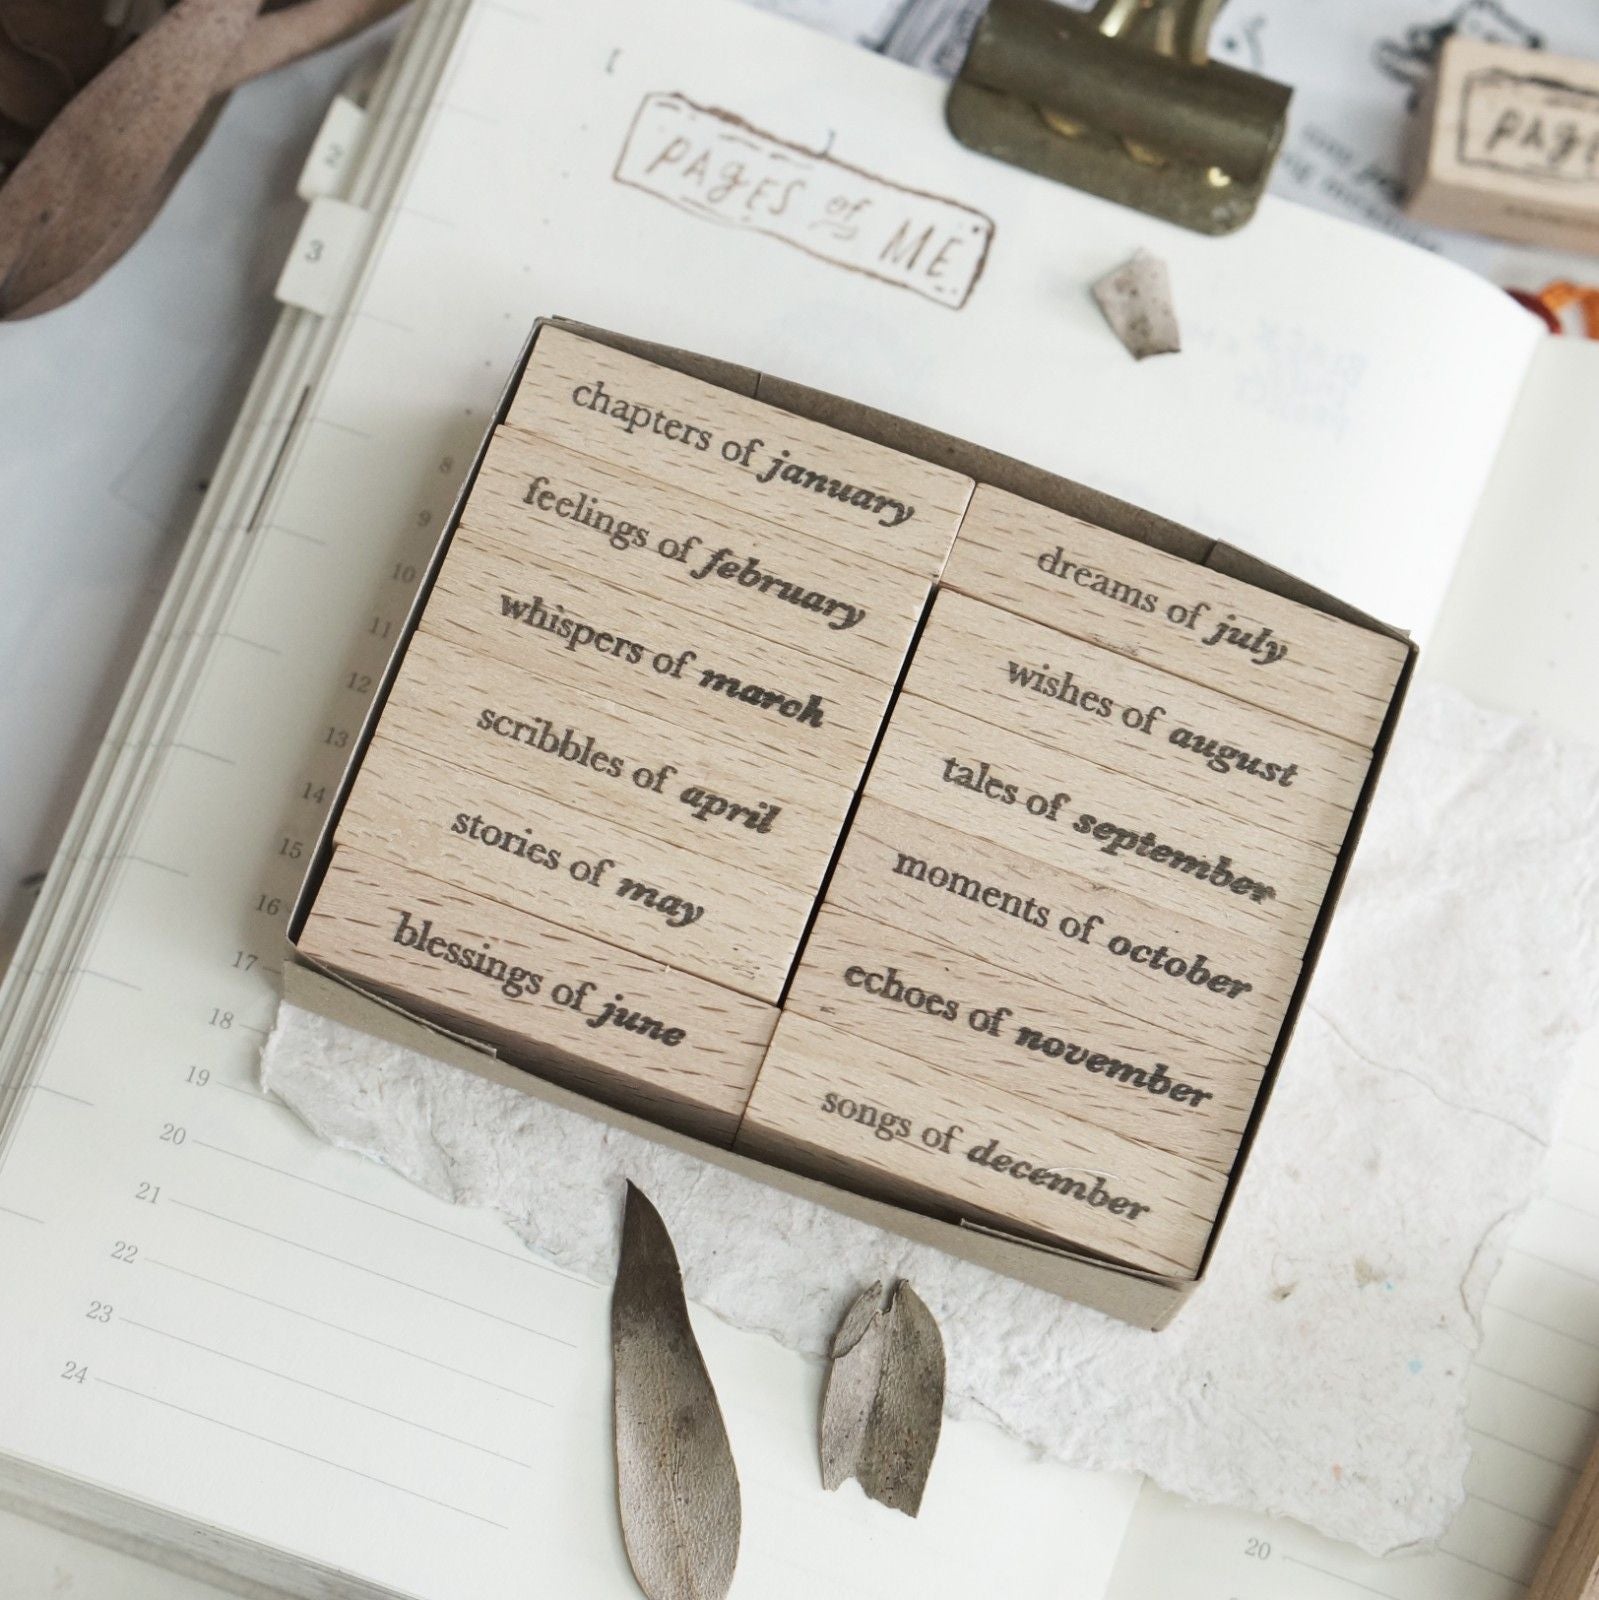 2
3
PAGES of ME
PAGE
chapters of january
feelings of february
whispers of march
scribbles of april
stories of may
blessings of june
dreams of july
wishes of august
tales of september
moments of october
echoes of november
songs of december
8
9
10
11
12
13
14
15
16
17
18
19
20
21
22
23
24
20